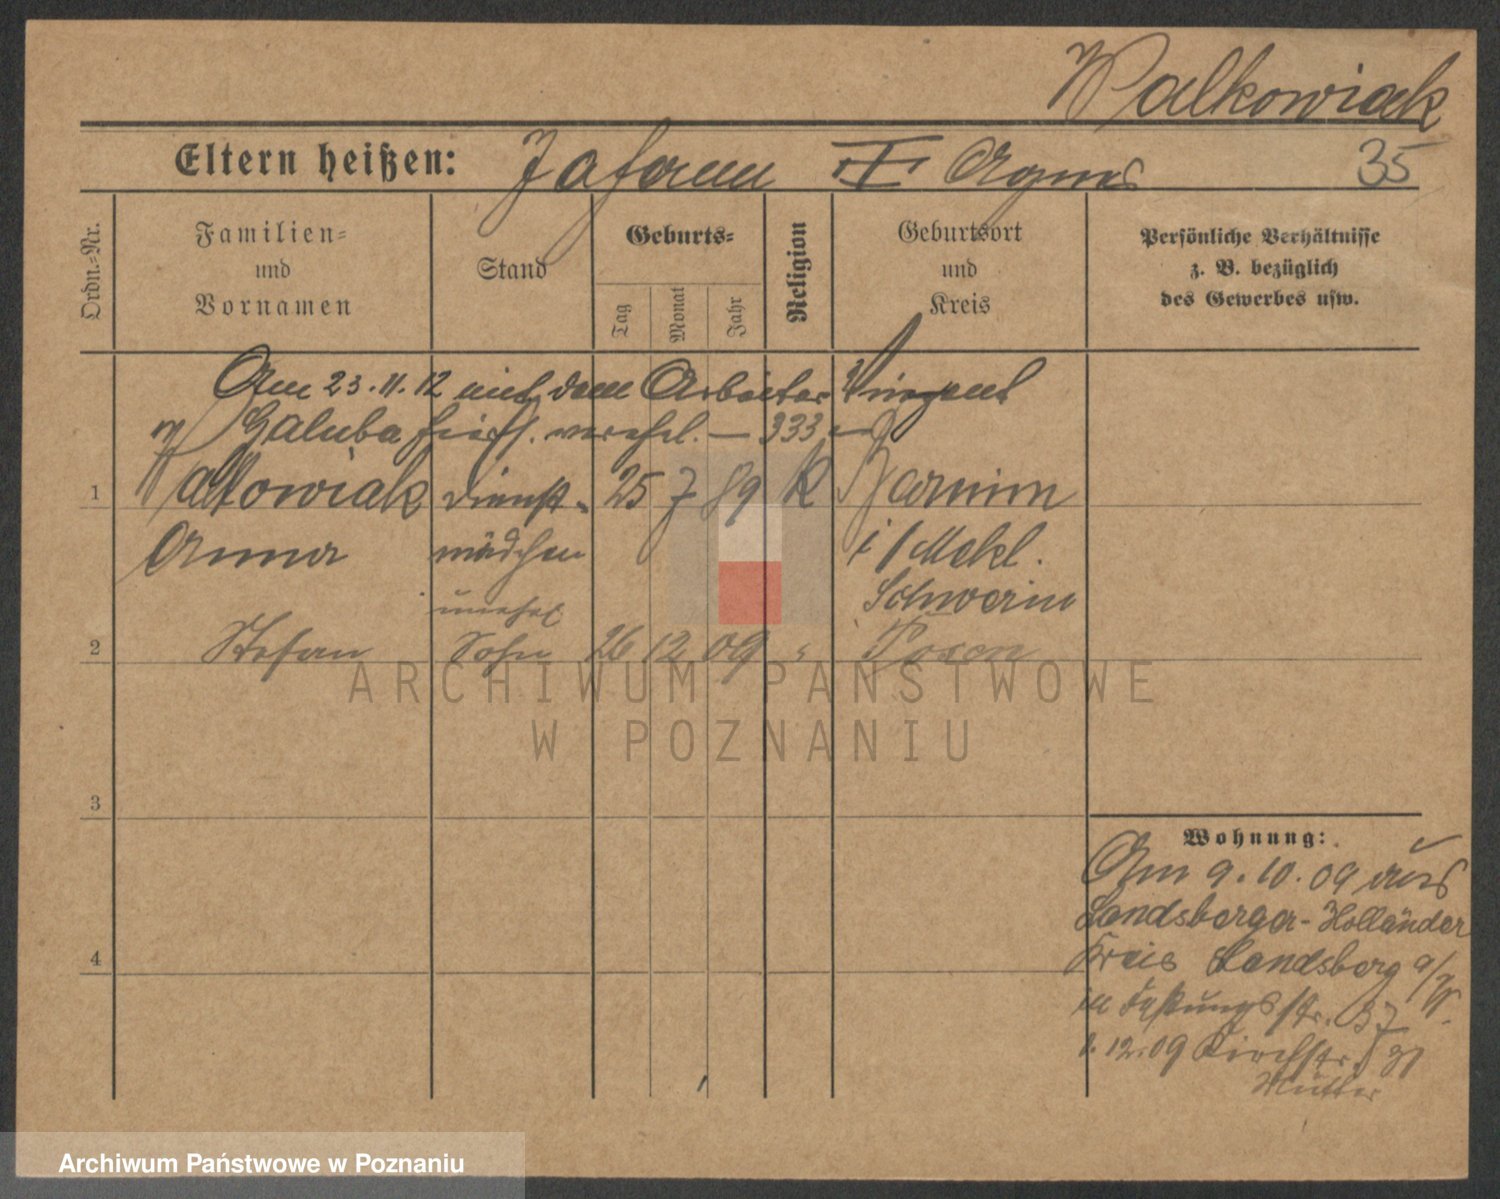 Walkowiak
Eltern heißen: Johann II Agnes 35
Ordn.-Nr.
Familien-
und
Vornamen
Stand
Geburts-
Tag
Monat
Jahr
Religion
Geburtsort
und
Kreis
Persönliche Verhältnisse
z. B. bezüglich
des Gewerbes usw.
Am 23.11.12 mit dem Arbeiter Vinzent
Galuba hier verehel. – 333
1 Walkowiak Dienst- 25 7 89 k Barnim
Anna mädchen i/Mekl.
Schwerin
unehel
2 Stefan Sohn 26 12 09 " Posen
3
4
Wohnung:
Am 9.10.09 aus
Landsberger-Holländer
Kreis Landsberg a/W.
in Festungsstr.
1.12.09 Kirchstr.
Mutter
ARCHIWUM PAŃSTWOWE
W POZNANIU
Archiwum Państwowe w Poznaniu